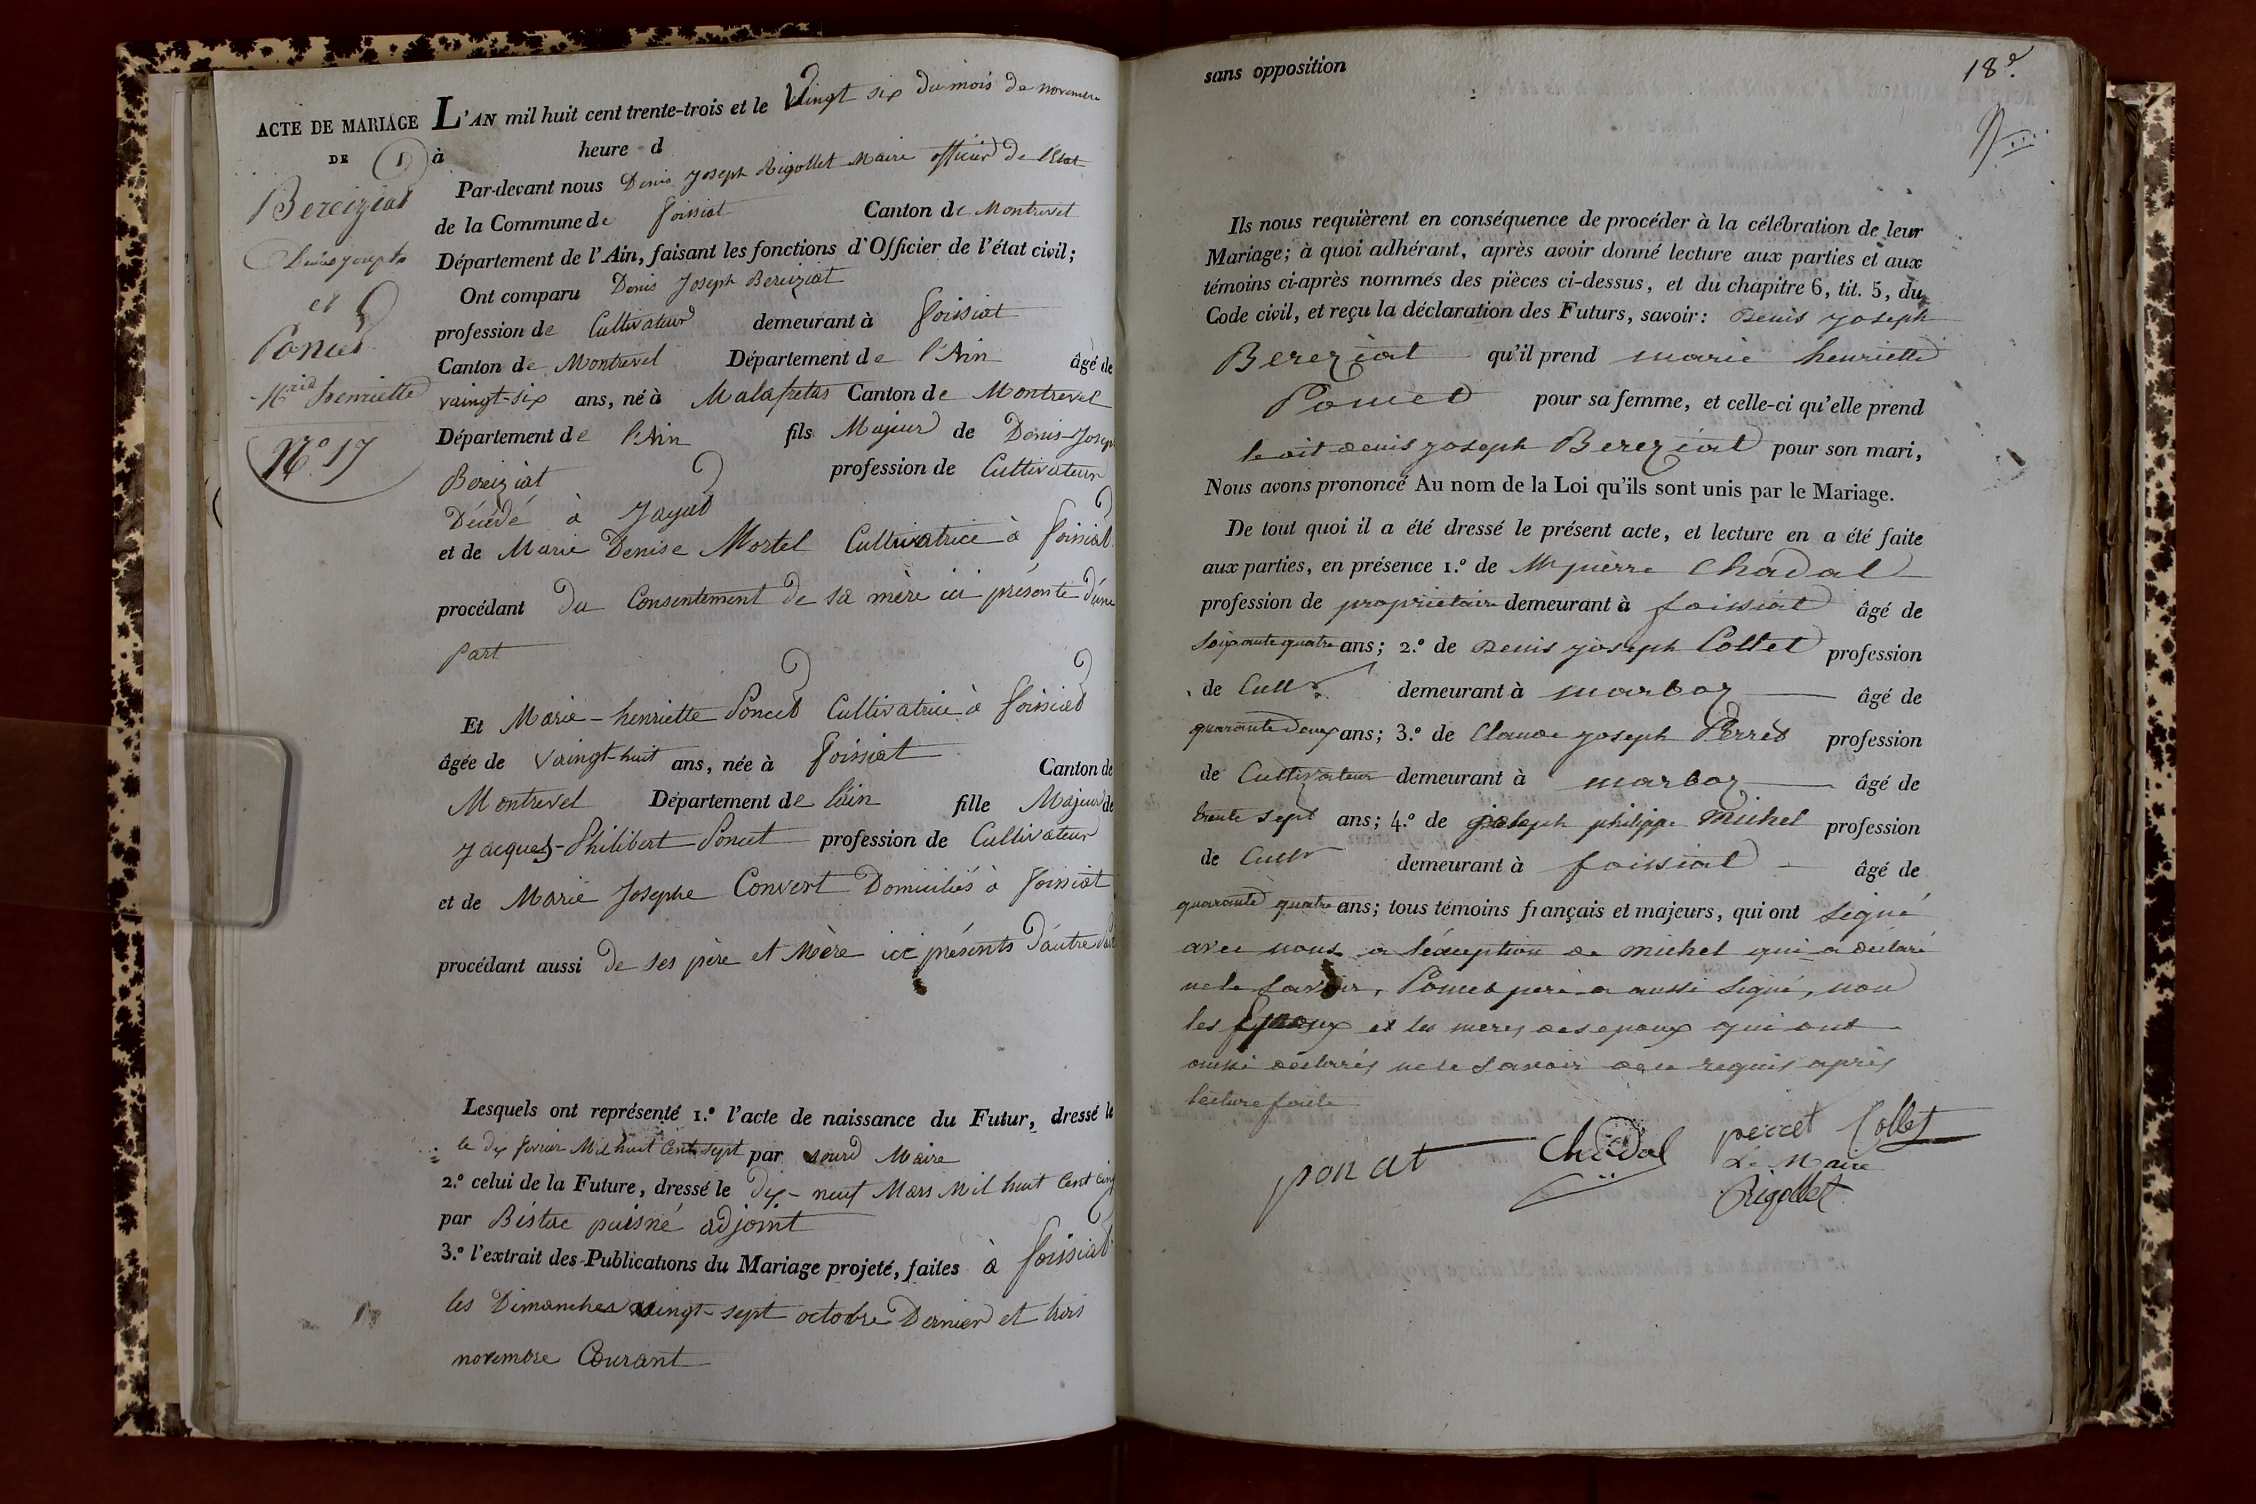 ACTE DE MARIAGE
DE
Bereiziat
Denis joseph
et
Poncet
Mrie henriette
N.o 17
L'AN mil huit cent trente-trois et le Vingt six du mois de novembre
à heure d
Par-devant nous Denis Joseph Rigollet Maire officier de l'Etat
de la Commune de foissiat Canton de Montrevel
Département de l'Ain, faisant les fonctions d'Officier de l'état civil;
Ont comparu Denis Joseph Bereiziat
profession de Cultivateur demeurant à foissiat
Canton de Montrevel Département de l'Ain âgé de
vaingt-six ans, né à Malafretas Canton de Montrevel
Département de l'Ain fils Majeur de Denis-Joseph
Bereiziat profession de Cultivateur
Décédé à Jayat
et de Marie Denise Mortel Cultivatrice à foissiat
procédant du Consentement de sa mère ici présente d'une
part
Et Marie-henriette Poncet Cultivatrice à foissiat
âgée de vaingt-huit ans, née à foissiat Canton de
Montrevel Département de l'ain fille Majeur de
Jacques-Philibert Poncet profession de Cultivateur
et de Marie Josephe Convert Domiciliés à foissiat
procédant aussi de ses père et Mère ici présents d'autre part
Lesquels ont représenté 1.o l'acte de naissance du Futur, dressé le
le dix fevrier Mil huit Cent sept par sourd Maire
2.o celui de la Future, dressé le dix-neuf Mars Mil huit Cent cinq
par Bistac puisné adjoint
3.o l'extrait des Publications du Mariage projeté, faites à foissiat
les Dimanches vaingt-sept octobre Dernier et trois
novembre Courant
18e
sans opposition
Ils nous requièrent en conséquence de procéder à la célébration de leur
Mariage; à quoi adhérant, après avoir donné lecture aux parties et aux
témoins ci-après nommés des pièces ci-dessus, et du chapitre 6, tit. 5, du
Code civil, et reçu la déclaration des Futurs, savoir: Denis joseph
Bereziat qu'il prend marie henriette
Poncet pour sa femme, et celle-ci qu'elle prend
ledit denis joseph Bereziat pour son mari,
Nous avons prononcé Au nom de la Loi qu'ils sont unis par le Mariage.
De tout quoi il a été dressé le présent acte, et lecture en a été faite
aux parties, en présence 1.o de Mr pierre Chadal
profession de proprietaire demeurant à foissiat âgé de
soixante quatre ans; 2.o de Denis joseph Collet profession
de Cultr demeurant à marboz âgé de
quarante deux ans; 3.o de Claude joseph Perret profession
de Cultivateur demeurant à marboz âgé de
trente sept ans; 4.o de joseph philippe Michel profession
de Cultr demeurant à foissiat âgé de
quarante quatre ans; tous témoins français et majeurs, qui ont signé
avec nous a l'éxception de michel qui a déclaré
ne le savoir, Poncet père a aussi signé, non
les Epoux et les meres des epoux qui ont
aussi déclarés ne le savoir de ce requis après
lecture faite
ponat Chadal perret Collet
Le Maire
Rigollet